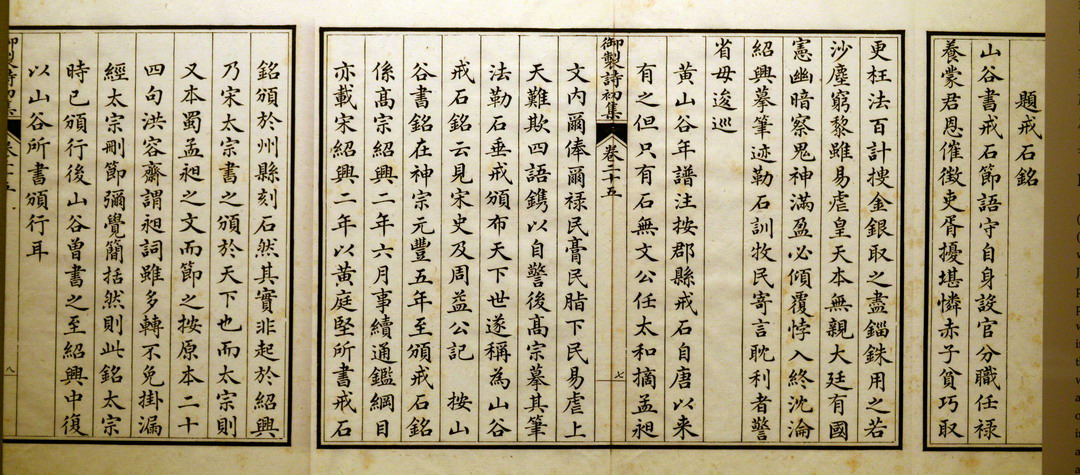 題戒石銘
山谷書戒石節語守自身設官分職任祿
養蒙君恩催徵吏胥擾堪憐赤子貧巧取
更枉法百計搜金銀取之盡錙銖用之若
沙塵窮黎雖易虐皇天本無親大廷有國
憲幽暗察鬼神滿盈必傾覆悖入終沈淪
紹興摹筆迹勒石訓牧民寄言耽利者警
省毋逡巡
黃山谷年譜注按郡縣戒石自唐以來
有之但只有石無文公任太和摘孟昶
御製詩初集 卷二十五 七
文內爾俸爾祿民膏民脂下民易虐上
天難欺四語鐫以自警後高宗摹其筆
法勒石垂戒頒布天下世遂稱為山谷
戒石銘云見宋史及周益公記 按山
谷書銘在神宗元豐五年至頒戒石銘
係高宗紹興二年六月事續通鑑綱目
亦載宋紹興二年以黃庭堅所書戒石
銘頒於州縣刻石然其實非起於紹興
乃宋太宗書之頒於天下也而太宗則
又本蜀孟昶之文而節之按原本二十
四句洪容齋謂昶詞雖多轉不免掛漏
經太宗刪節彌覺簡括然則此銘太宗
時已頒行後山谷曾書之至紹興中復
以山谷所書頒行耳
御製詩初集 卷二十五 八